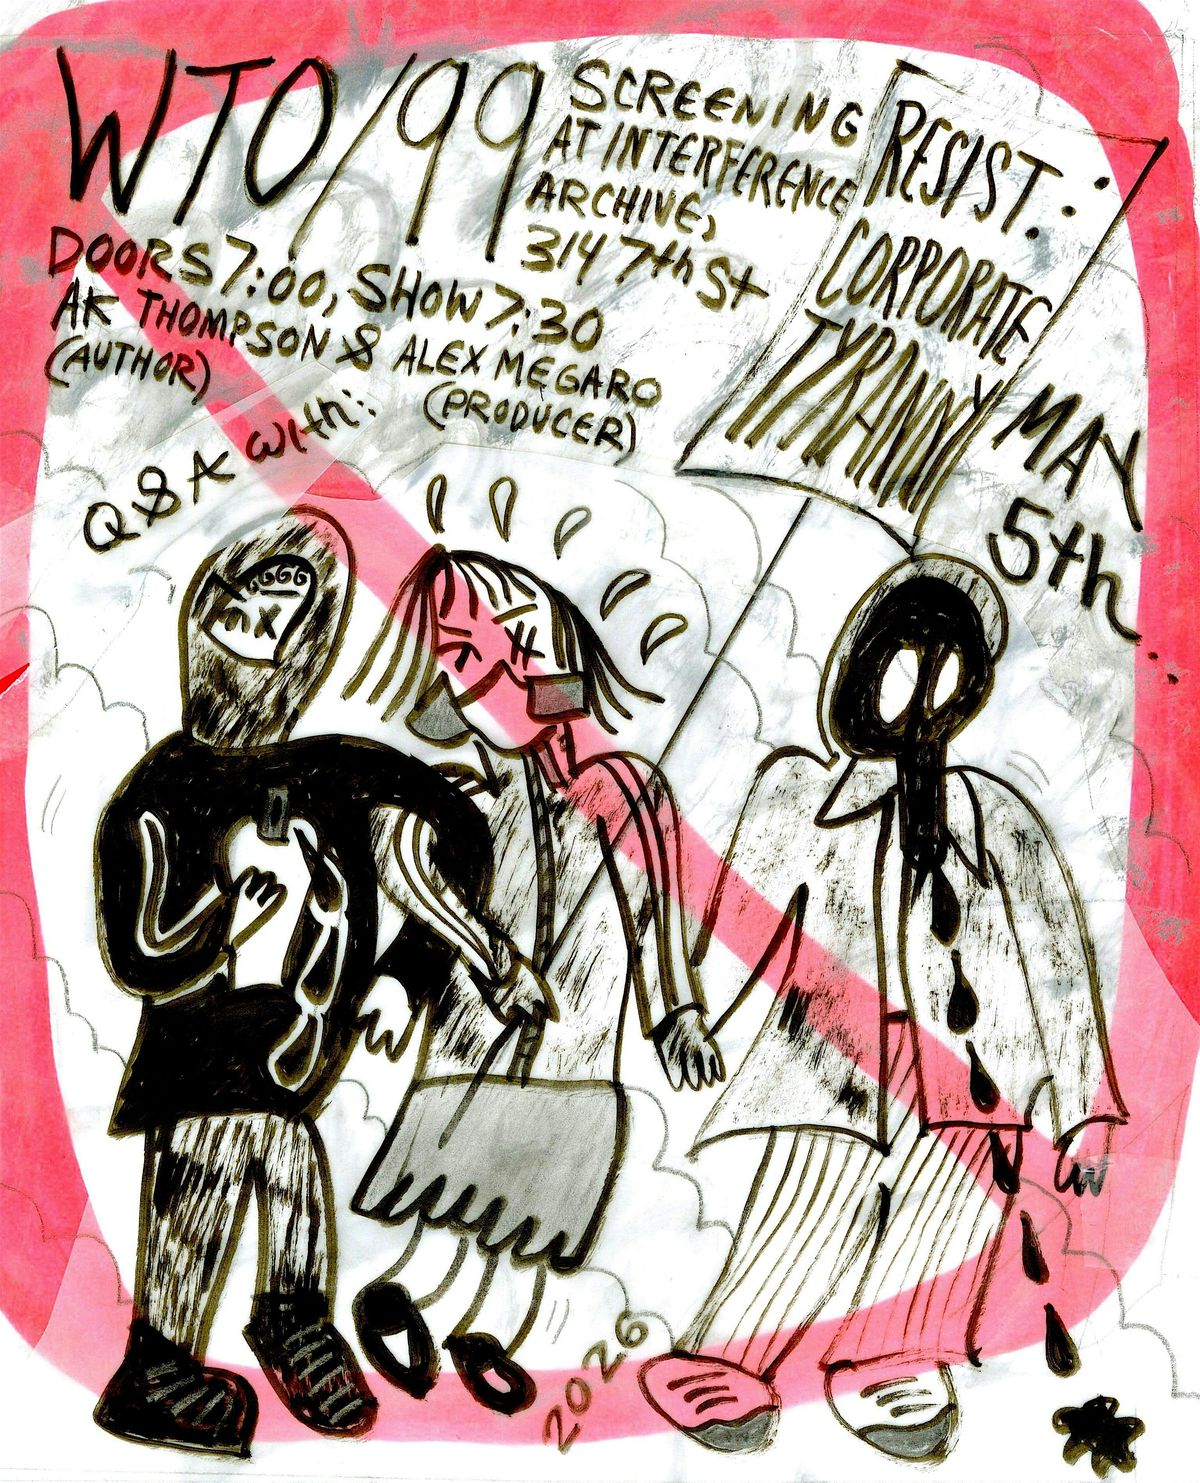 WTO/99
SCREENING
AT INTERFERENCE
ARCHIVE,
314 7th St
DOORS 7:00, SHOW 7:30
AK THOMPSON & ALEX MEGARO
(AUTHOR)
(PRODUCER)
Q&A with:
RESIST:
CORPORATE
TYRANNY
MAY
5th
2026